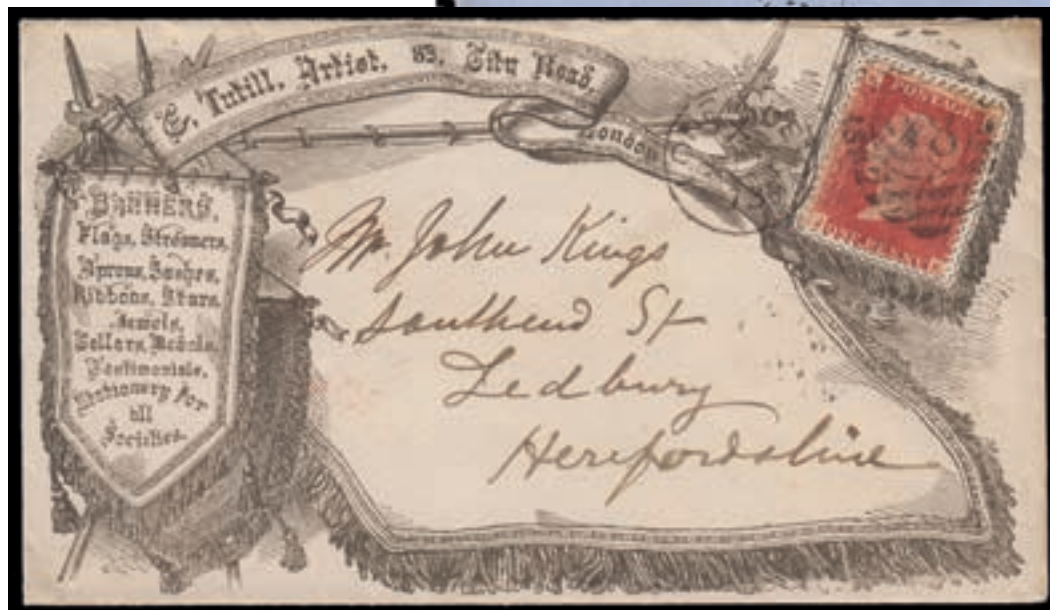 G. Tutill, Artist, 83, City Road,
London
BANNERS,
Flags, Streamers,
Aprons, Sashes,
Ribbons, Stars,
Jewels,
Collars, Medals,
Testimonials,
Stationery for
all
Societies
POSTAGE
ONE PENNY
Mr. John Kings
Southend St
Ledbury
Herefordshire